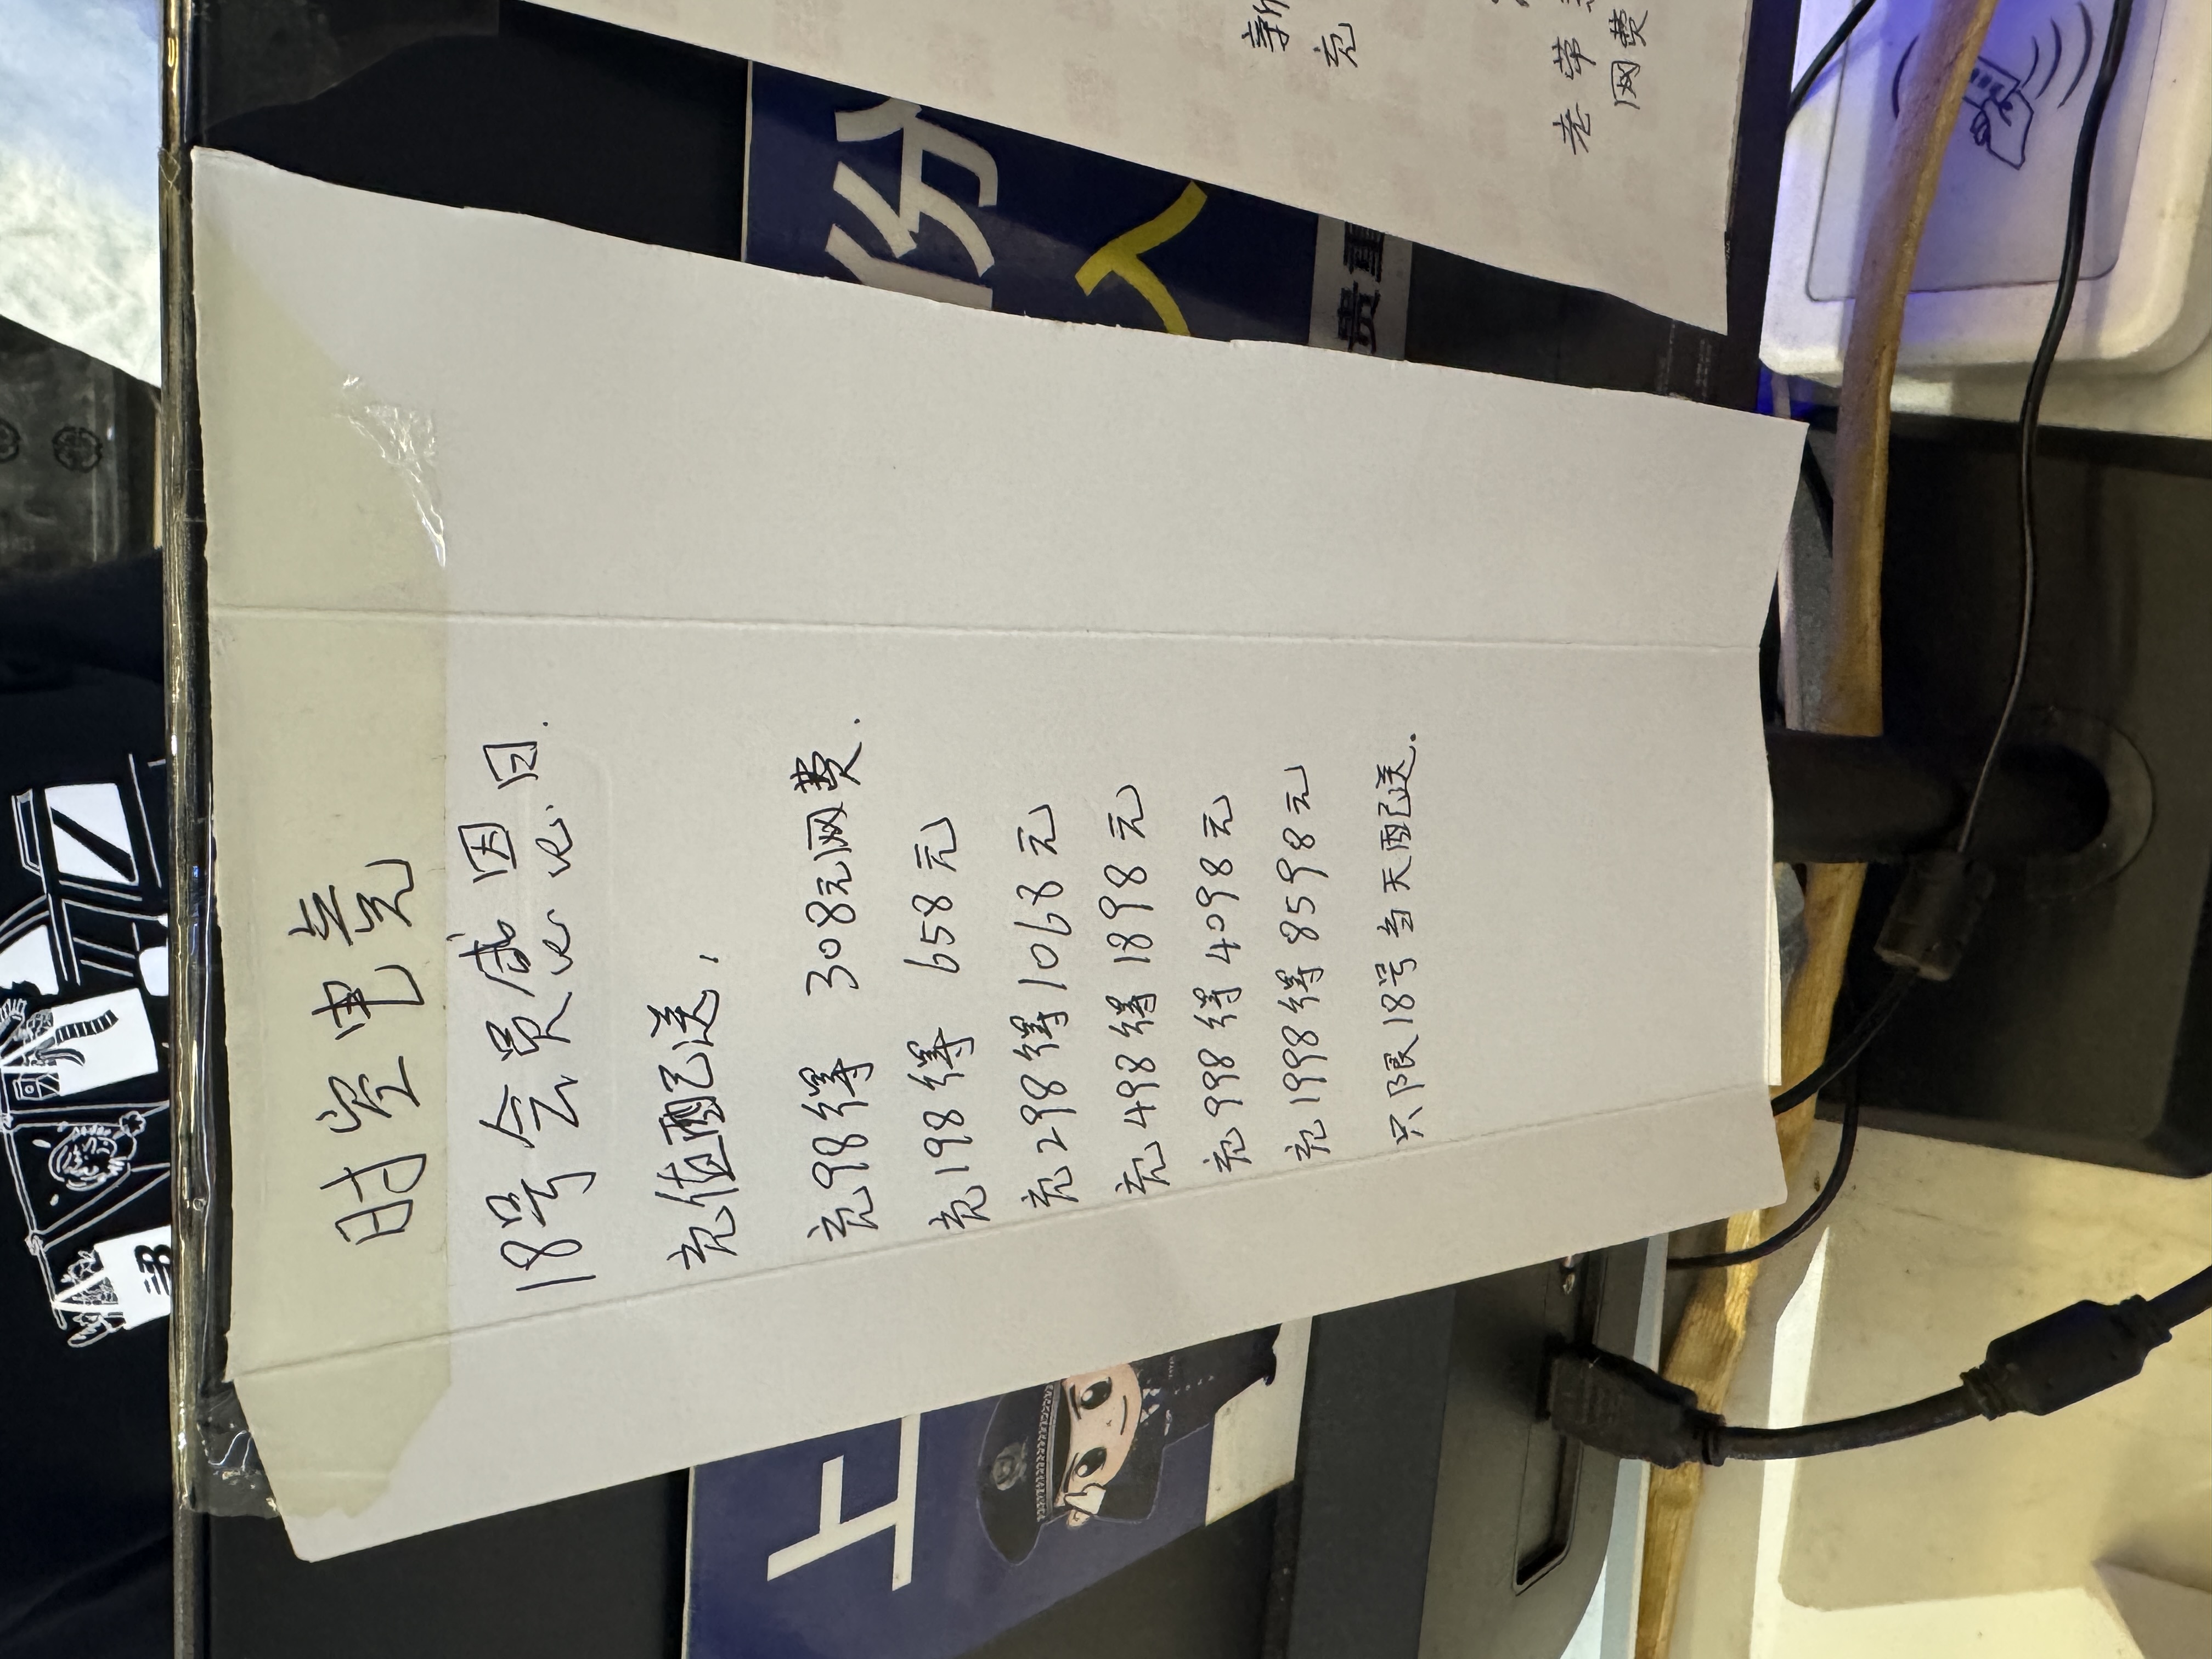 时空电竞
18号会员感恩因恩日.
充值配送,
充98得 308元网费.
充198得 658元
充298得1068元
充498得1898元
充998得4098元
充1998得8598元
只限18号当天配送.
新
充
老带
网费
份
人
贵重
上